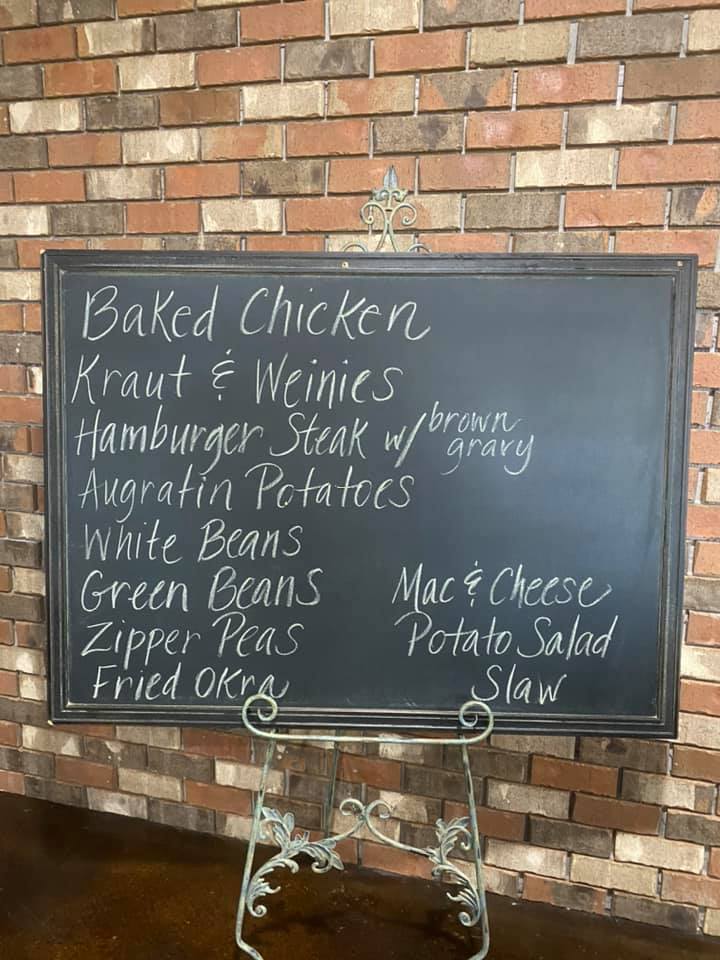 Baked Chicken
Kraut & Weinies
Hamburger Steak w/ brown gravy
Augratin Potatoes
White Beans
Green Beans
Zipper Peas
Fried Okra
Mac & Cheese
Potato Salad
Slaw